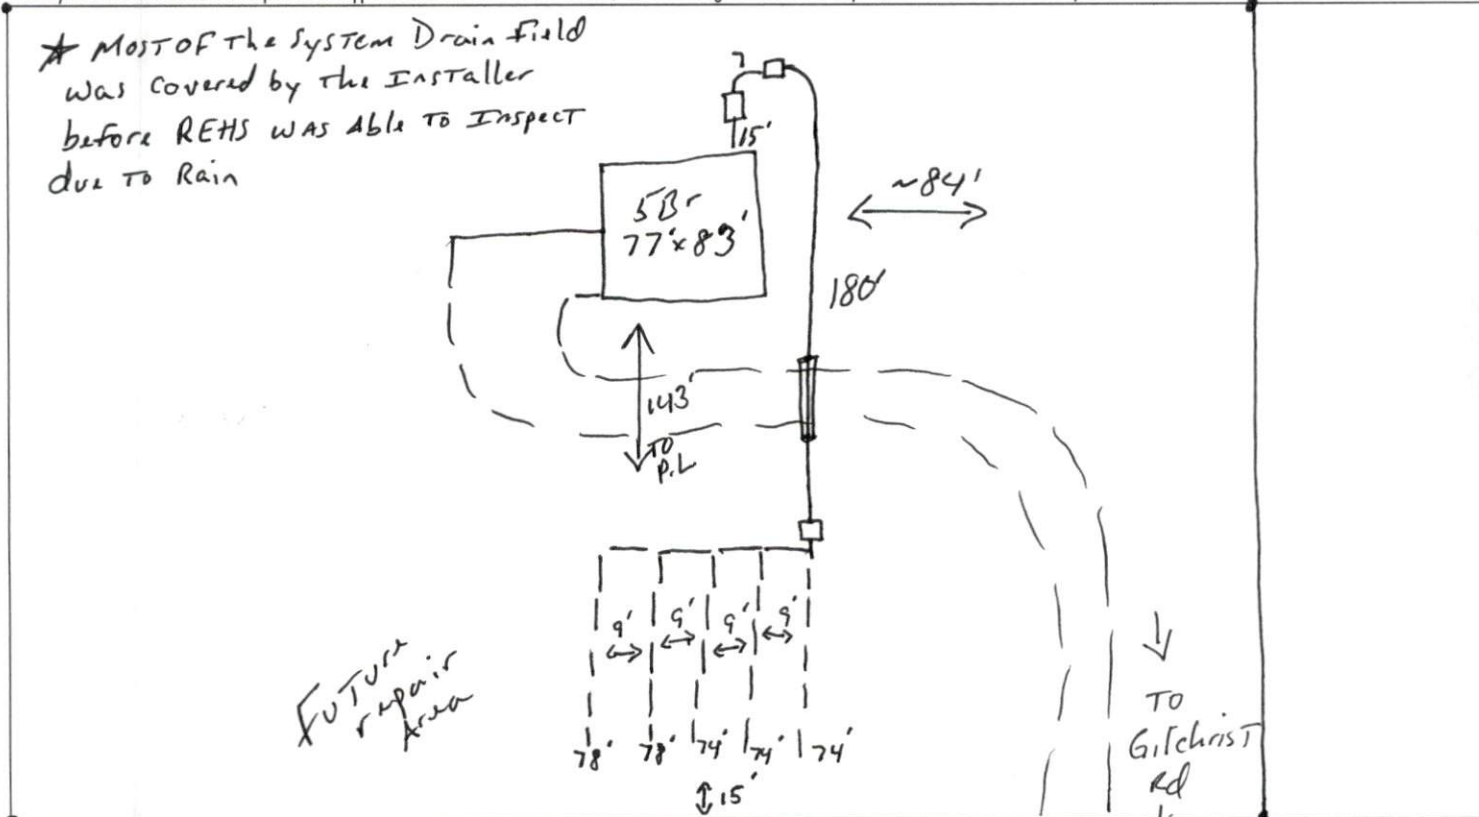 * MOST OF The System Drain field
was covered by the Installer
before REHS WAS Able TO Inspect
due TO Rain
7
15'
5Br
77'x83'
~84'
180'
143'
TO
P.L
9' 9' 9' 9'
Future
repair
Area
78' 78' 74' 74' 74'
15'
TO
Gilchrist
Rd